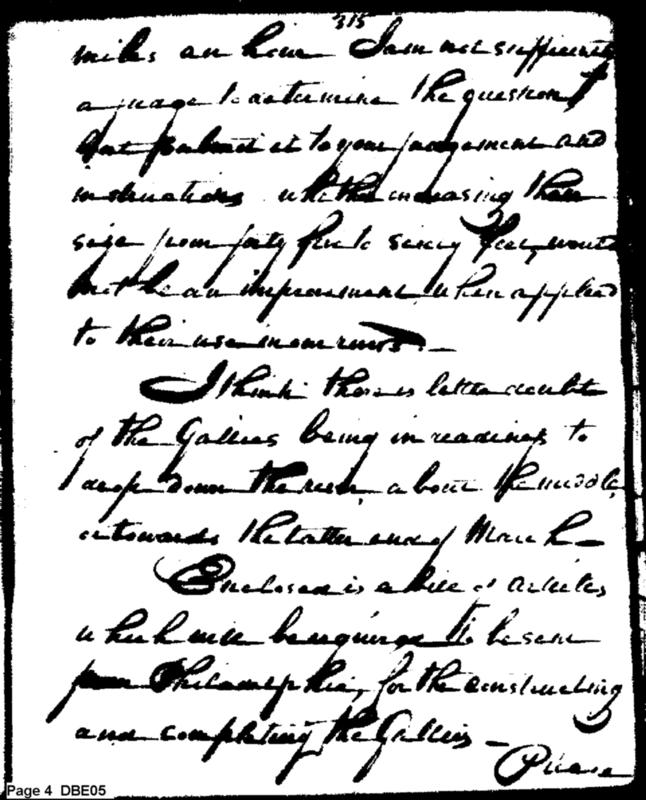 315
miles an hour I am not sufficiently
a judge to determine the question
but submit it to your judgement and
instructions whether increasing their
size from forty five to sixty feet, would
not be an improvement when applied
to their use in our rivers. —
I think there is little doubt
of the Gallies being in readiness to
drop down the river about the middle,
or towards the latter end of March —
Enclosed is a bill of articles
which will be required to be sent
from Philadelphia, for the constructing
and completing the Gallies —
Please
Page 4 DBE05